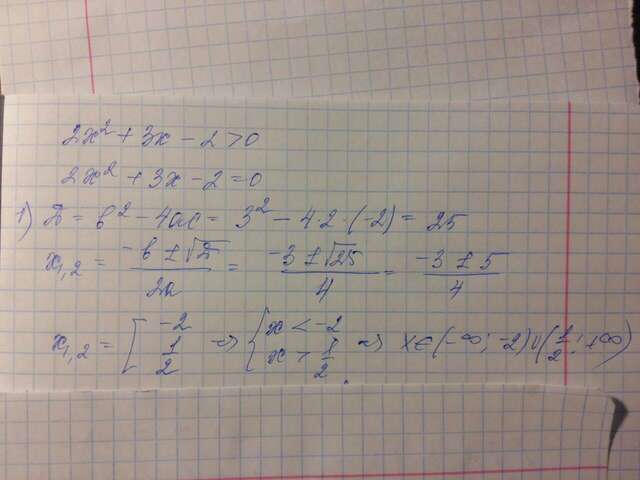 2x² + 3x - 2 > 0
2x² + 3x - 2 = 0
1) D = b² - 4ac = 3² - 4·2·(-2) = 25
x₁,₂ = (-b ± √D)/2a = (-3 ± √25)/4 = (-3 ± 5)/4
x₁,₂ = [-2; 1/2 ⇒ {x < -2; x > 1/2 ⇒ x ∈ (-∞; -2) ∪ (1/2; +∞)